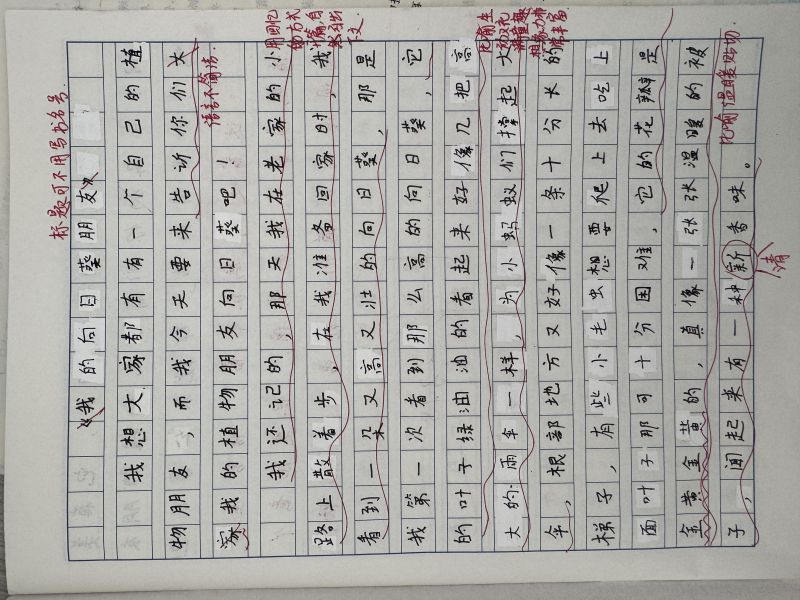 标题可不用写书名号.
《我的向日葵朋友》
我想大家都有有一个自己的植
物朋友,而我今天要来告诉你们关
语言不简洁
家我的植物朋友向日葵吧!
我还记的,那天我在老家的小
用回忆的方式
路上散着步,在我准备回家时,我
下文
看到一朵又高又壮的向日葵,那是
我第一次看到那么高的向日葵,它
的叶子绿油油的看起来好像几把高
大的雨伞一样,为小蚂蚁们撑起大
伞,根部地方又好像一条十分长的
梯子,有些小毛虫想要爬上去吃上
面叶子那可十分困难,它的花瓣是
金黄金黄的,真像一张张温暖的被
比喻温暖贴切.
子,闻起来有一种新香味。
清